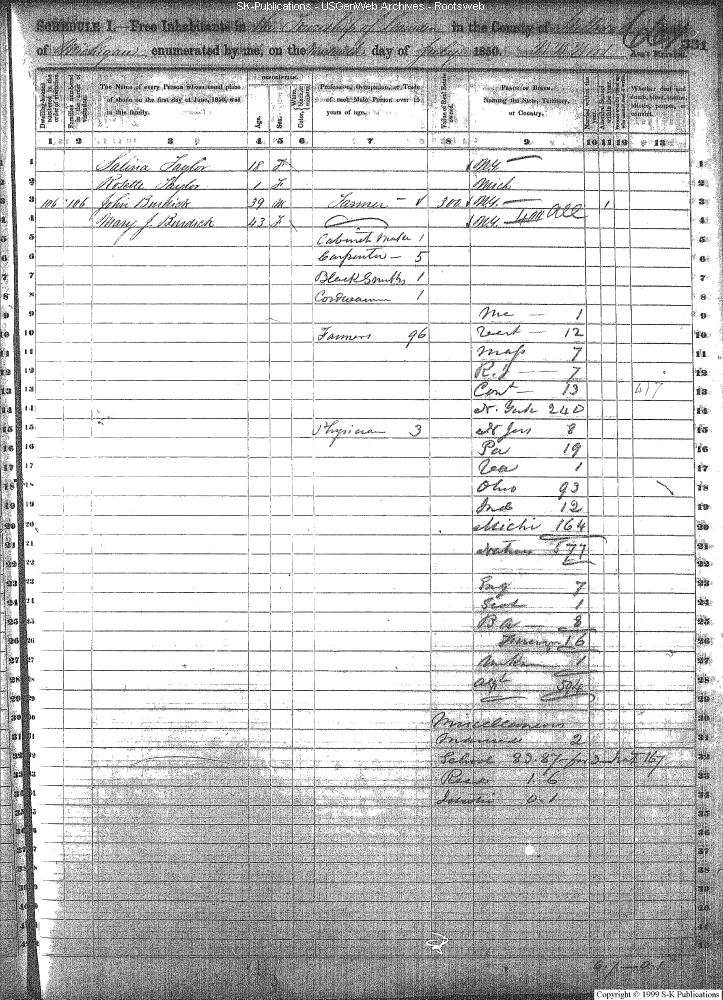 SK-Publications - USGenWeb Archives - Rootsweb
SCHEDULE I.—Free Inhabitants in the Township of in the County of 331
of Michigan enumerated by me, on the day of July 1850. Ass't Marshal.
Dwelling-houses numbered in the order of visitation.
Families numbered in the order of visitation.
The Name of every Person whose usual place of abode on the first day of June, 1850, was in this family.
DESCRIPTION.
Age.
Sex.
White, Color,
Profession, Occupation, or Trade of each Male Person over 15 years of age.
Value of Real Estate owned.
PLACE OF BIRTH.
Naming the State, Territory, or Country.
Married within the year.
1 2 3 4 5 6 7 8 9 10 11 12 13
1 Salina Taylor 18 F N.Y.
2 Roselle Taylor 1 F Mich
3 106 106 John Burdick 39 M Farmer 300 N.Y. 1
4 Mary J. Burdick 43 F N.Y. all
5 Cabinet Maker 1
6 Carpenter — 5
7 BlackSmiths 1
8 Cordwainer 1
9 Me — 1
10 Farmers 96 Vert — 12
11 Mass 7
12 R.I — 7
13 Cont — 13 417
14 N. York 240
15 Physician 3 N Jers 8
16 Pa 19
17 Va 1
18 Ohio 93
19 Ind 12
20 Michi 164
21 Natives 577
22
23 Eng 7
24 Scot 1
25 B A — 8
26 Foreign 16
27 Unknn 1
28 Aggt 594
29
30 Miscellaneous
31 Married 2
32 School 83.87 167
33 Read 1.6
34 0.1
Copyright © 1999 S-K Publications